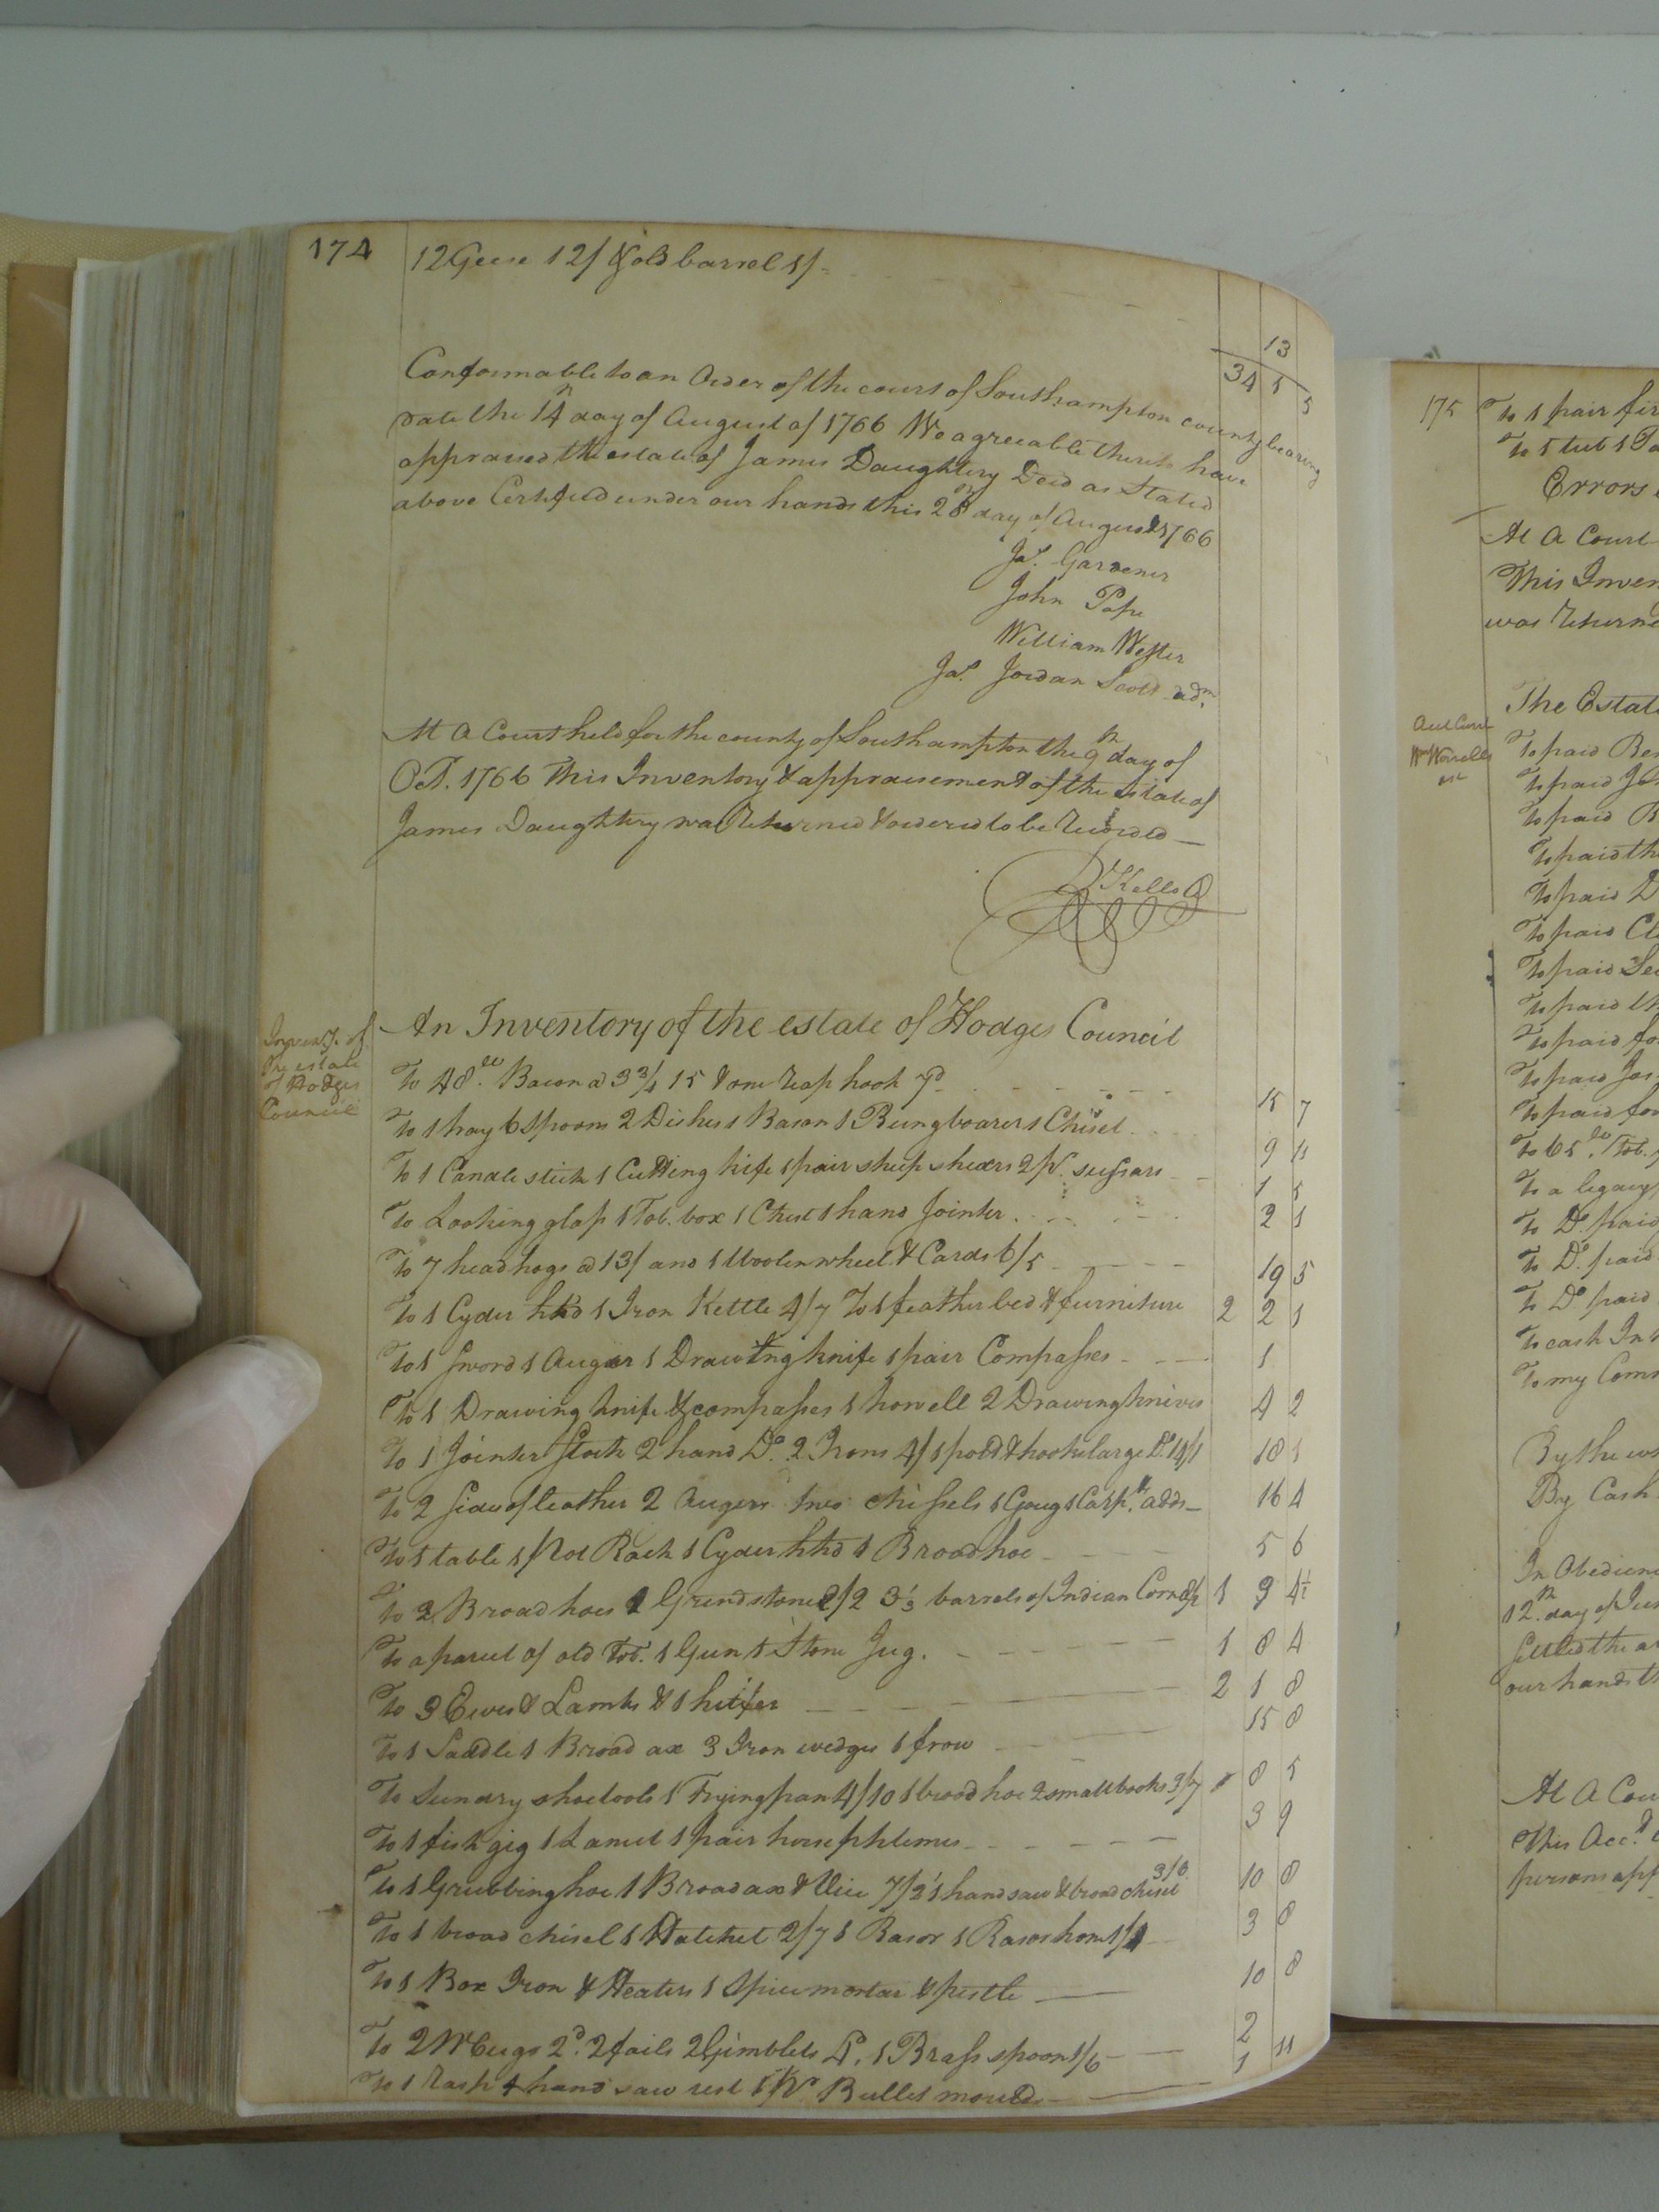 174
12 Geese 12/ & old barrel 1/-
13
34 1 5
Conformable to an Order of the court of Southampton county bearing
date the 14th day of August of 1766 We agreeable thereto have
appraised the estate of James Daughtery Decd as Stated
above Certified under our hands this 28th day of August 1766
Jas. Gardener
John Pope
William Wester
Jas. Jordan Scott adm.
At a Court held for the county of Southampton the 9th day of
Oct. 1766 This Inventory & appraisement of the estate of
James Daughtery was Returned & ordered to be Recorded
Inventy. of
the estate
of Hodges
Council
An Inventory of the estate of Hodges Council
To 48 lb. Bacon a 3 3/4 15 & one reap hook 7d 15 7
To 1 tray 6 spoons 2 Dishes 1 Bason 1 Bungboarer 1 Chisel 9 11
To 1 Candle stick 1 Cutting knife 1 pair sheep shears 2 pr. scissars 1 5
To Looking glass 1 Tob. box 1 Chest 1 hand Jointer 2 1
To 7 head hogs a 13/ and 1 Woolen wheel & Cards 6/5 19 5
To 1 Cyder hhd 1 Iron Kettle 4/7 To 1 feather bed & furniture 2 2 1
To 1 Sword 1 Auger 1 Drawing knife 1 pair Compasses 1
To 1 Drawing knife & compasses 1 howell 2 Drawing knives 4 2
To 1 Jointer Stock 2 hand Do. 2 Irons 4/ 1 pott & hooks large Do. 14/1 18 1
To 2 Sides of leather 2 Augers two chissels 1 Goug 1 Carp. adds 16 4
To 1 table 1 Rack 1 Cyder hhd 1 Broad hoe 5 6
To 2 Broad hoes 1 Grindstone 8/2 barrels of Indian Corn 1 9 4 1/2
To a parcel of old Tob. 1 Gun 1 Stone Jug. 1 8 4
To 3 Ewes & Lambs & 1 heifer 2 1 8
To 1 Saddle 1 Broad ax 3 Iron wedges 1 frow 15 8
To Sundry shoe tools 1 Frying pan 4/10 1 broad hoe 2 small books 3/7 8 5
To 1 fish gig 1 Lancet 1 pair horse phlemes 3 9
To 1 Grubbing hoe 1 Broad ax & Vice 7/2 1 hand saw & broad chisel 3/6 10 8
To 1 broad chisel 1 Hatchet 2/7 1 Rasor 1 Rasor hone 1/1 3 8
To 1 Box Iron & Heaters 1 Spice mortar & pestle 10 8
To 2 2d. 2 2 Gimblets 1 Brass spoon 1/6 2
To 1 rasp & hand saw rest 1 pr Bullet moulds 1 11
175
To 1 pair
To 1 tub 1
Errors
At a Court
This Inven
was Returne
Wm Worrells
est
The Estate
To paid Ben
To paid
To paid B
To paid th
To paid D
To paid
To paid
To paid th
To paid fo
To paid Jas
To paid for
To 65 lb Tob.
To a legacy
To Do. paid
To Do. paid
To Do. paid
To cash In
To my Com
By the
By Cash
In Obedien
12th day of
Settled the a
our hands th
At a Cou
This Acct.
persons app